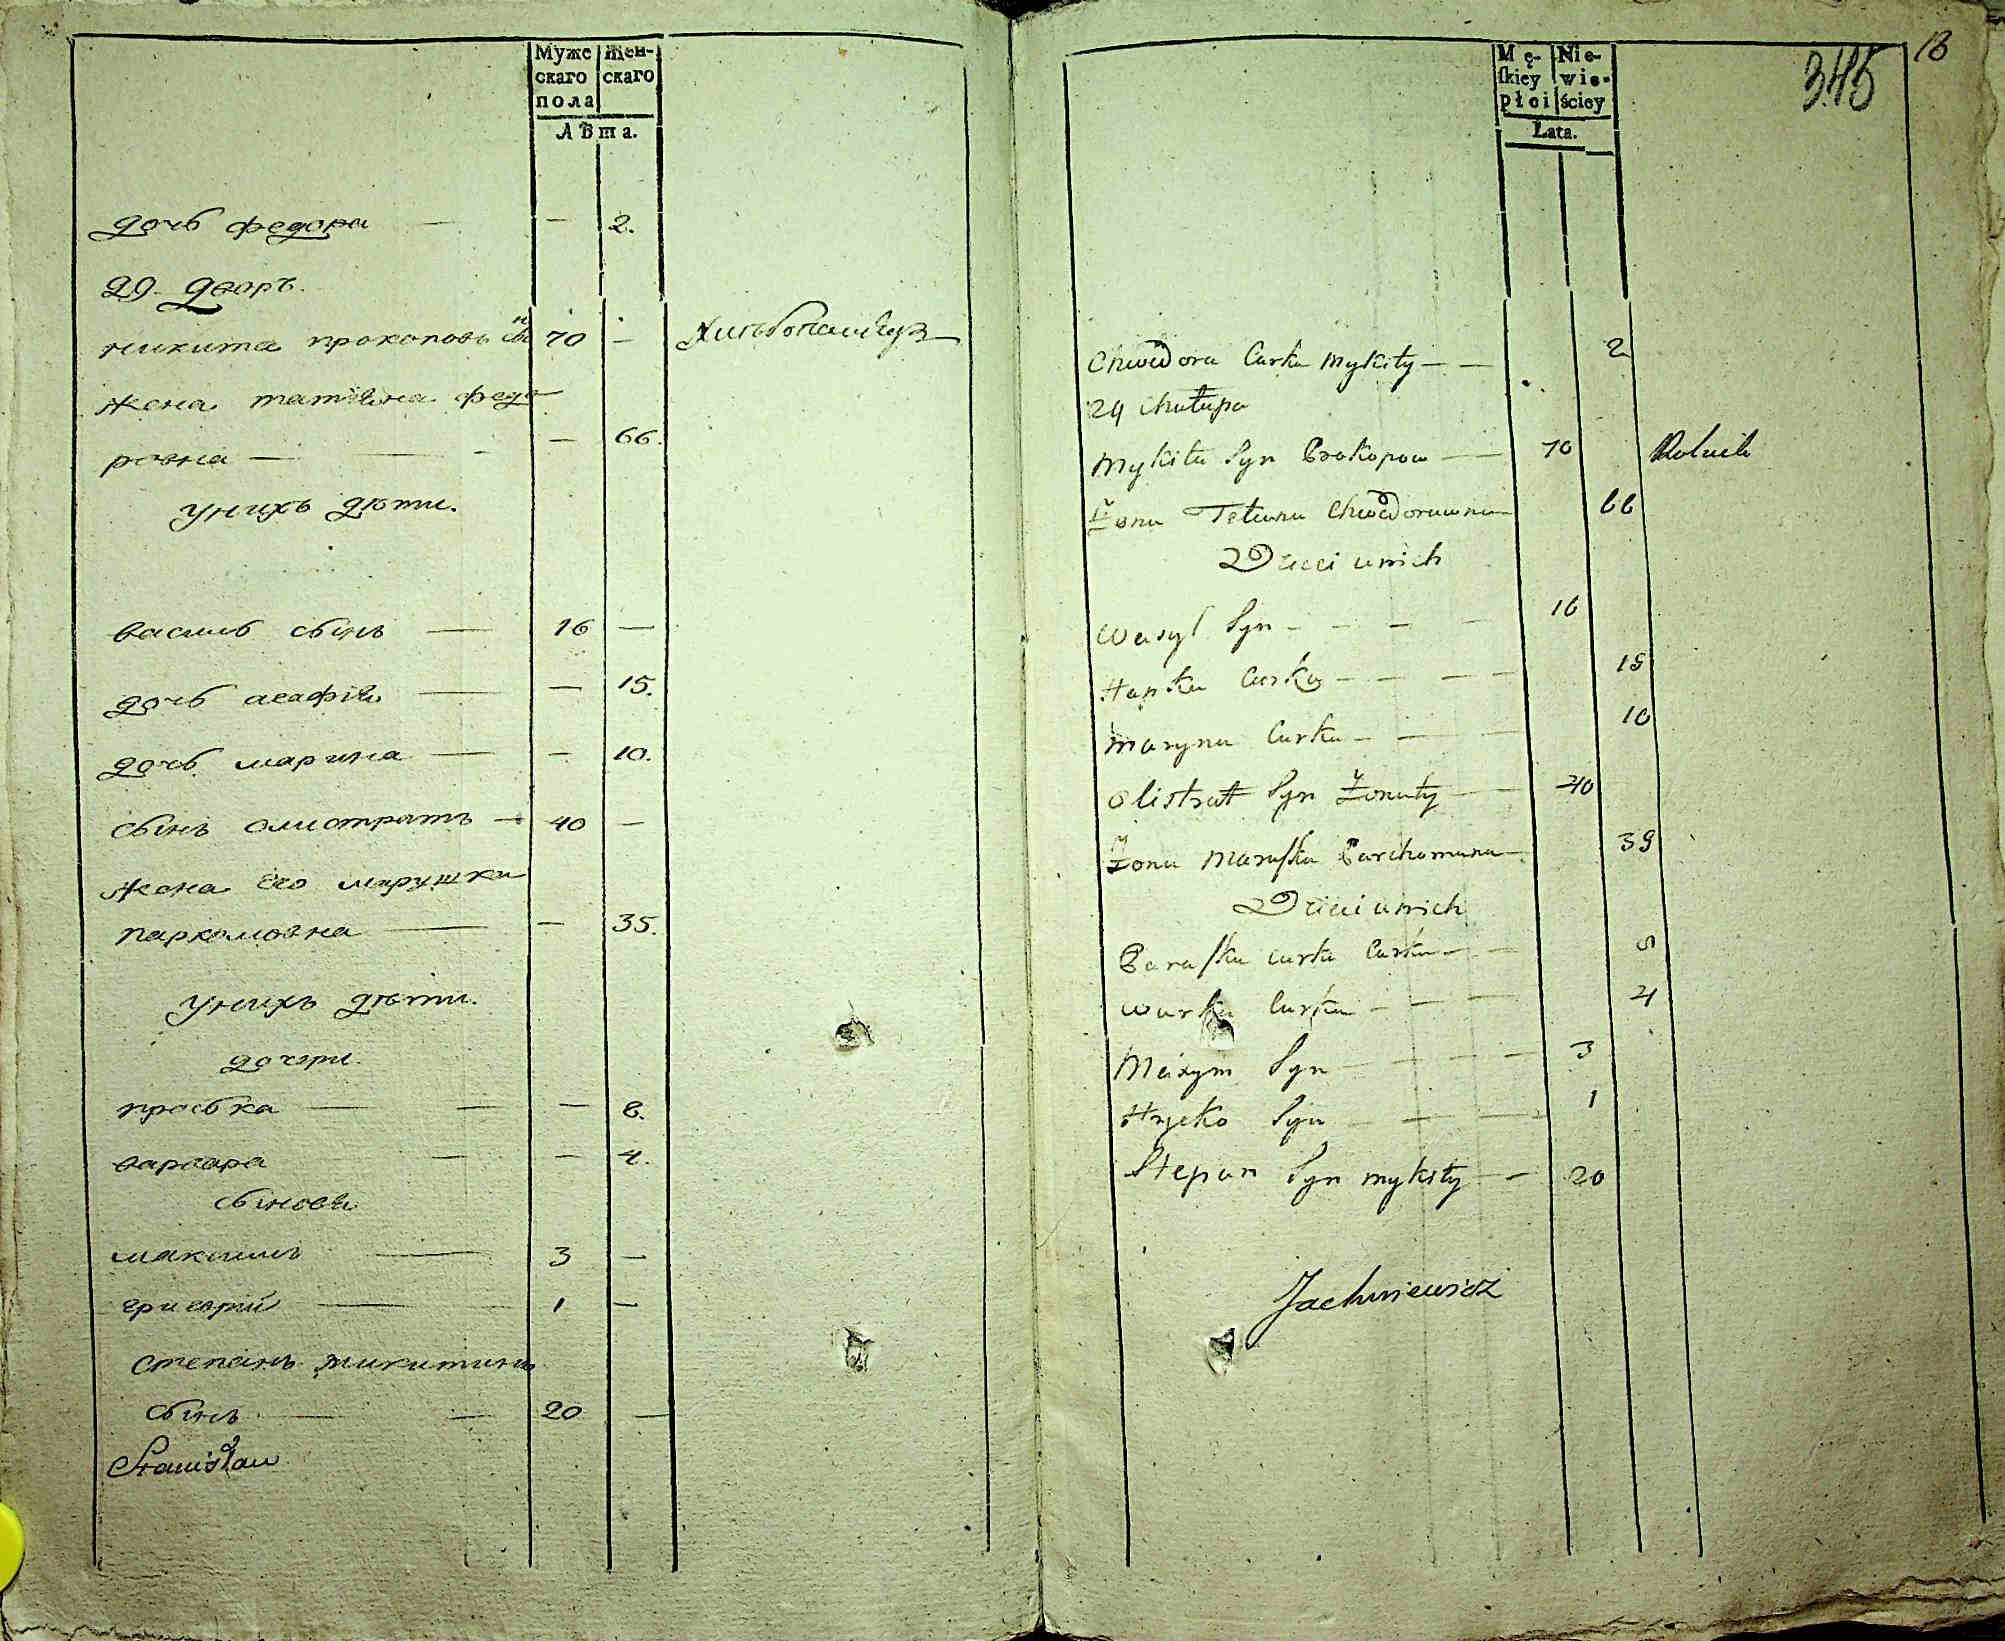 Муже
скаго
пола
Жен-
скаго
Лѣта.
дочь федора — — 2.
29. дворъ.
никита прокоповъ снъ 70 —
жена татіана федо
ровна — — 66.
унихъ дѣти.
василь сынъ — 16 —
дочь агафія — — 15.
дочь марина — — 10.
сынъ олистратъ — 40 —
жена его марушка
паркомовна — — 35.
унихъ дѣти.
дочери.
праська — — — 8.
варвара — — 4.
сынове
максимъ — 3 —
григорій — 1 —
степанъ микитинъ
сынъ — — 20 —
Stanisław
18
345
Mę-
ſkiey
płci
Nie-
wie-
ściey
Lata.
Chwedora Curka Mykity — — 2
29 Chałupa
Mykita Syn Prokopow — — 70 Rolnik
Żona Tetiana Chwedorowna 66
Dzieci unich
Wasyl Syn — — — — 16
Hapka Curka — — — — 15
Maryna Curka — — — 10
Olistrat Syn Żonaty — — 40
Żona Maruſka Parchomowna — 39
Dzieci unich
Paraſka curka Curka — — 8
Warka Curka — — — 4
Maxym Syn — — — 3
Hryćko Syn — — — 1
Stepan Syn mykity — — 20
Jachniewicz